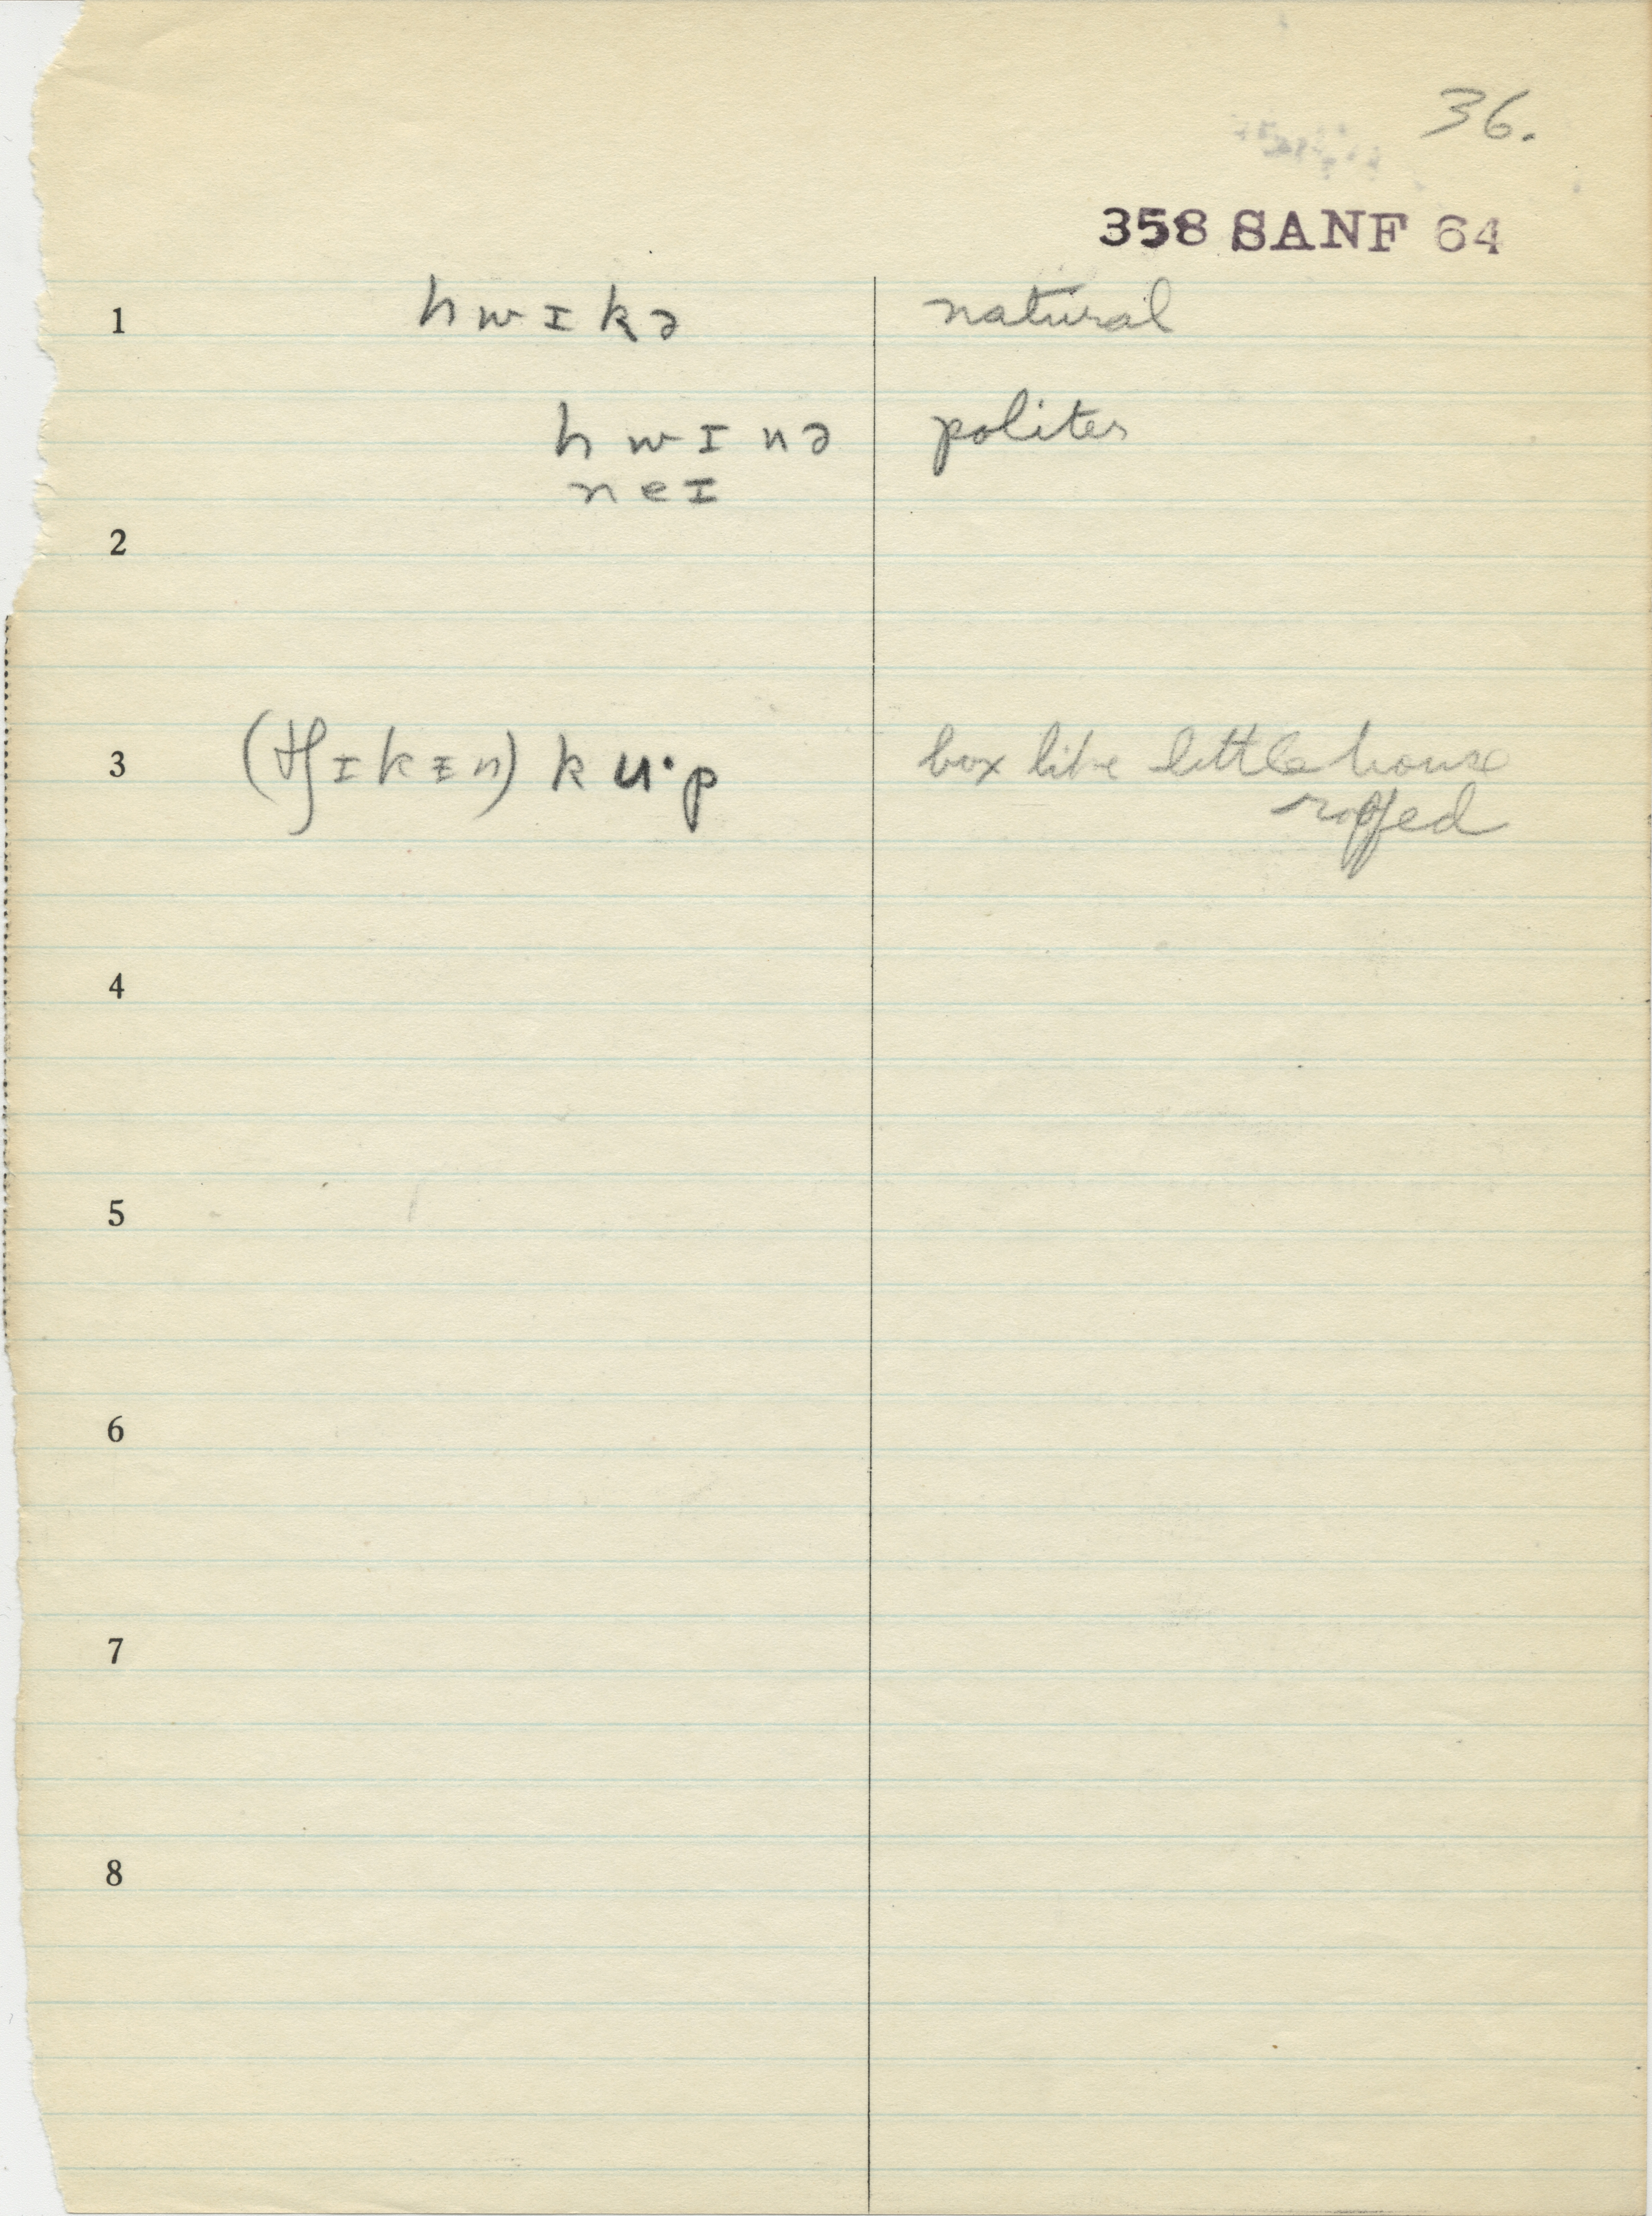 36.
358 SANF 64
1 hwɪkə natural
hwɪnə polites
neɪ
2
3 (tʃɪkɪ̵n) kuˑp box like little house
roofed
4
5
6
7
8